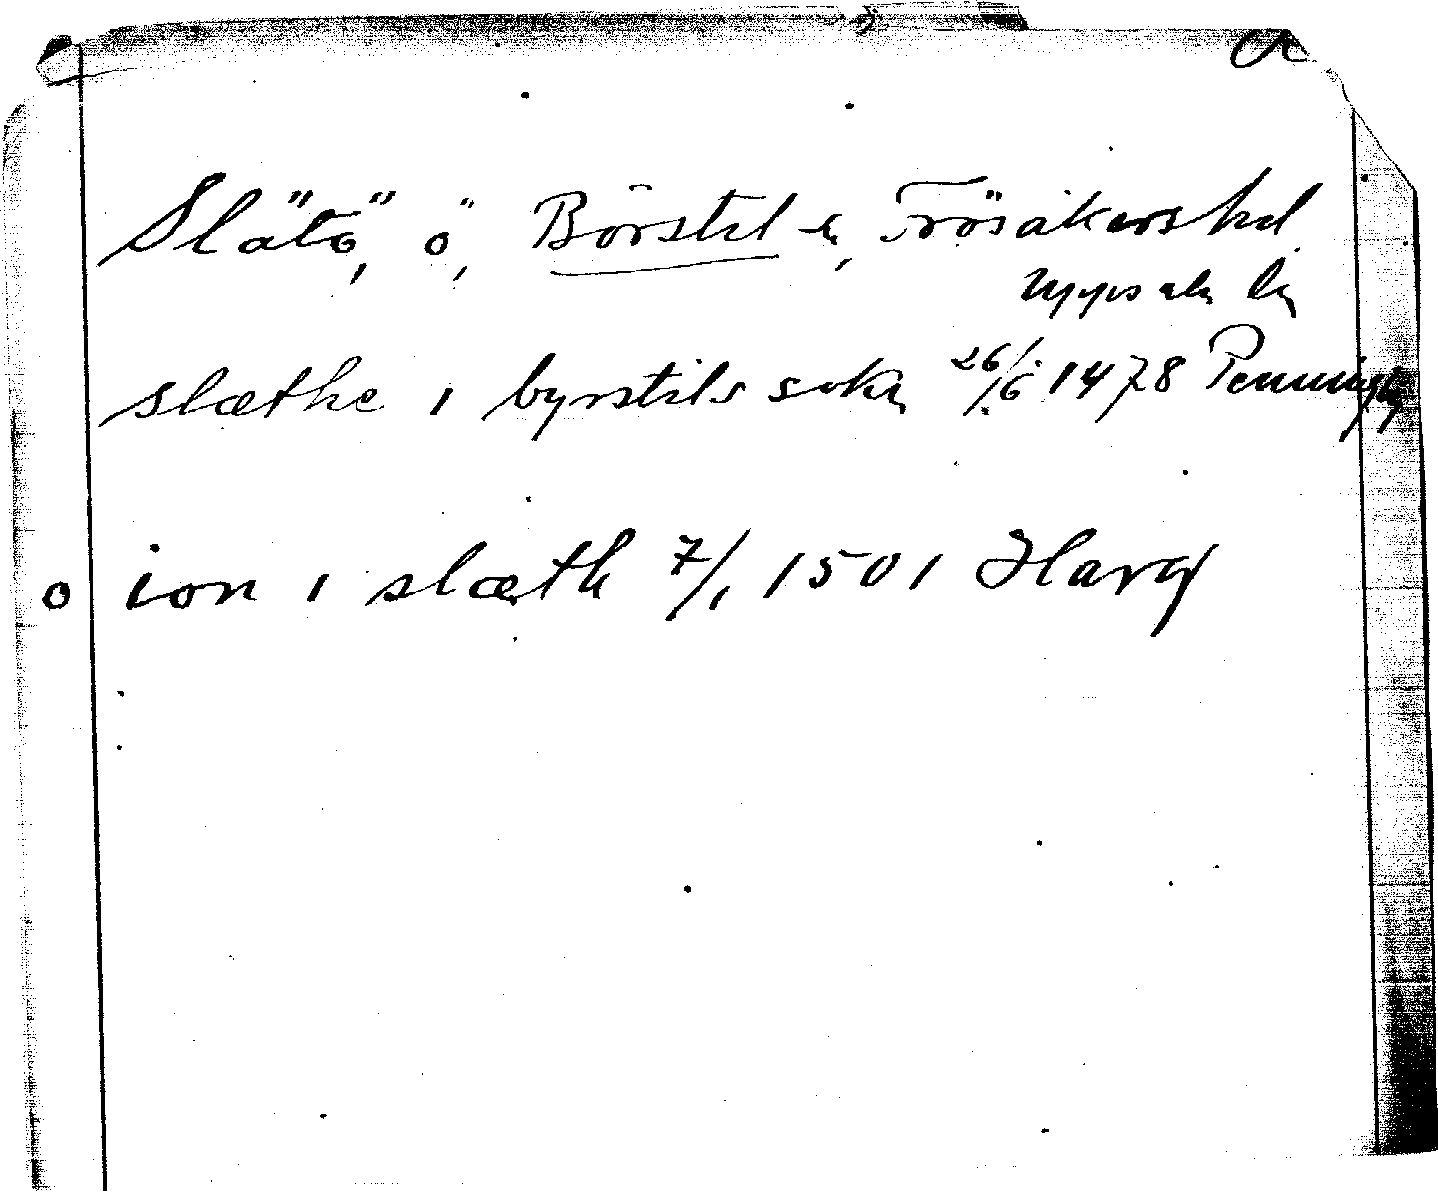 a
Slätö, ö, Börstil sn, Frösåkers hd
Uppsala län
slæthe i byrstils sokn 26/6 1478 Penningby
o ion i slæth 7/1 1501 Harg